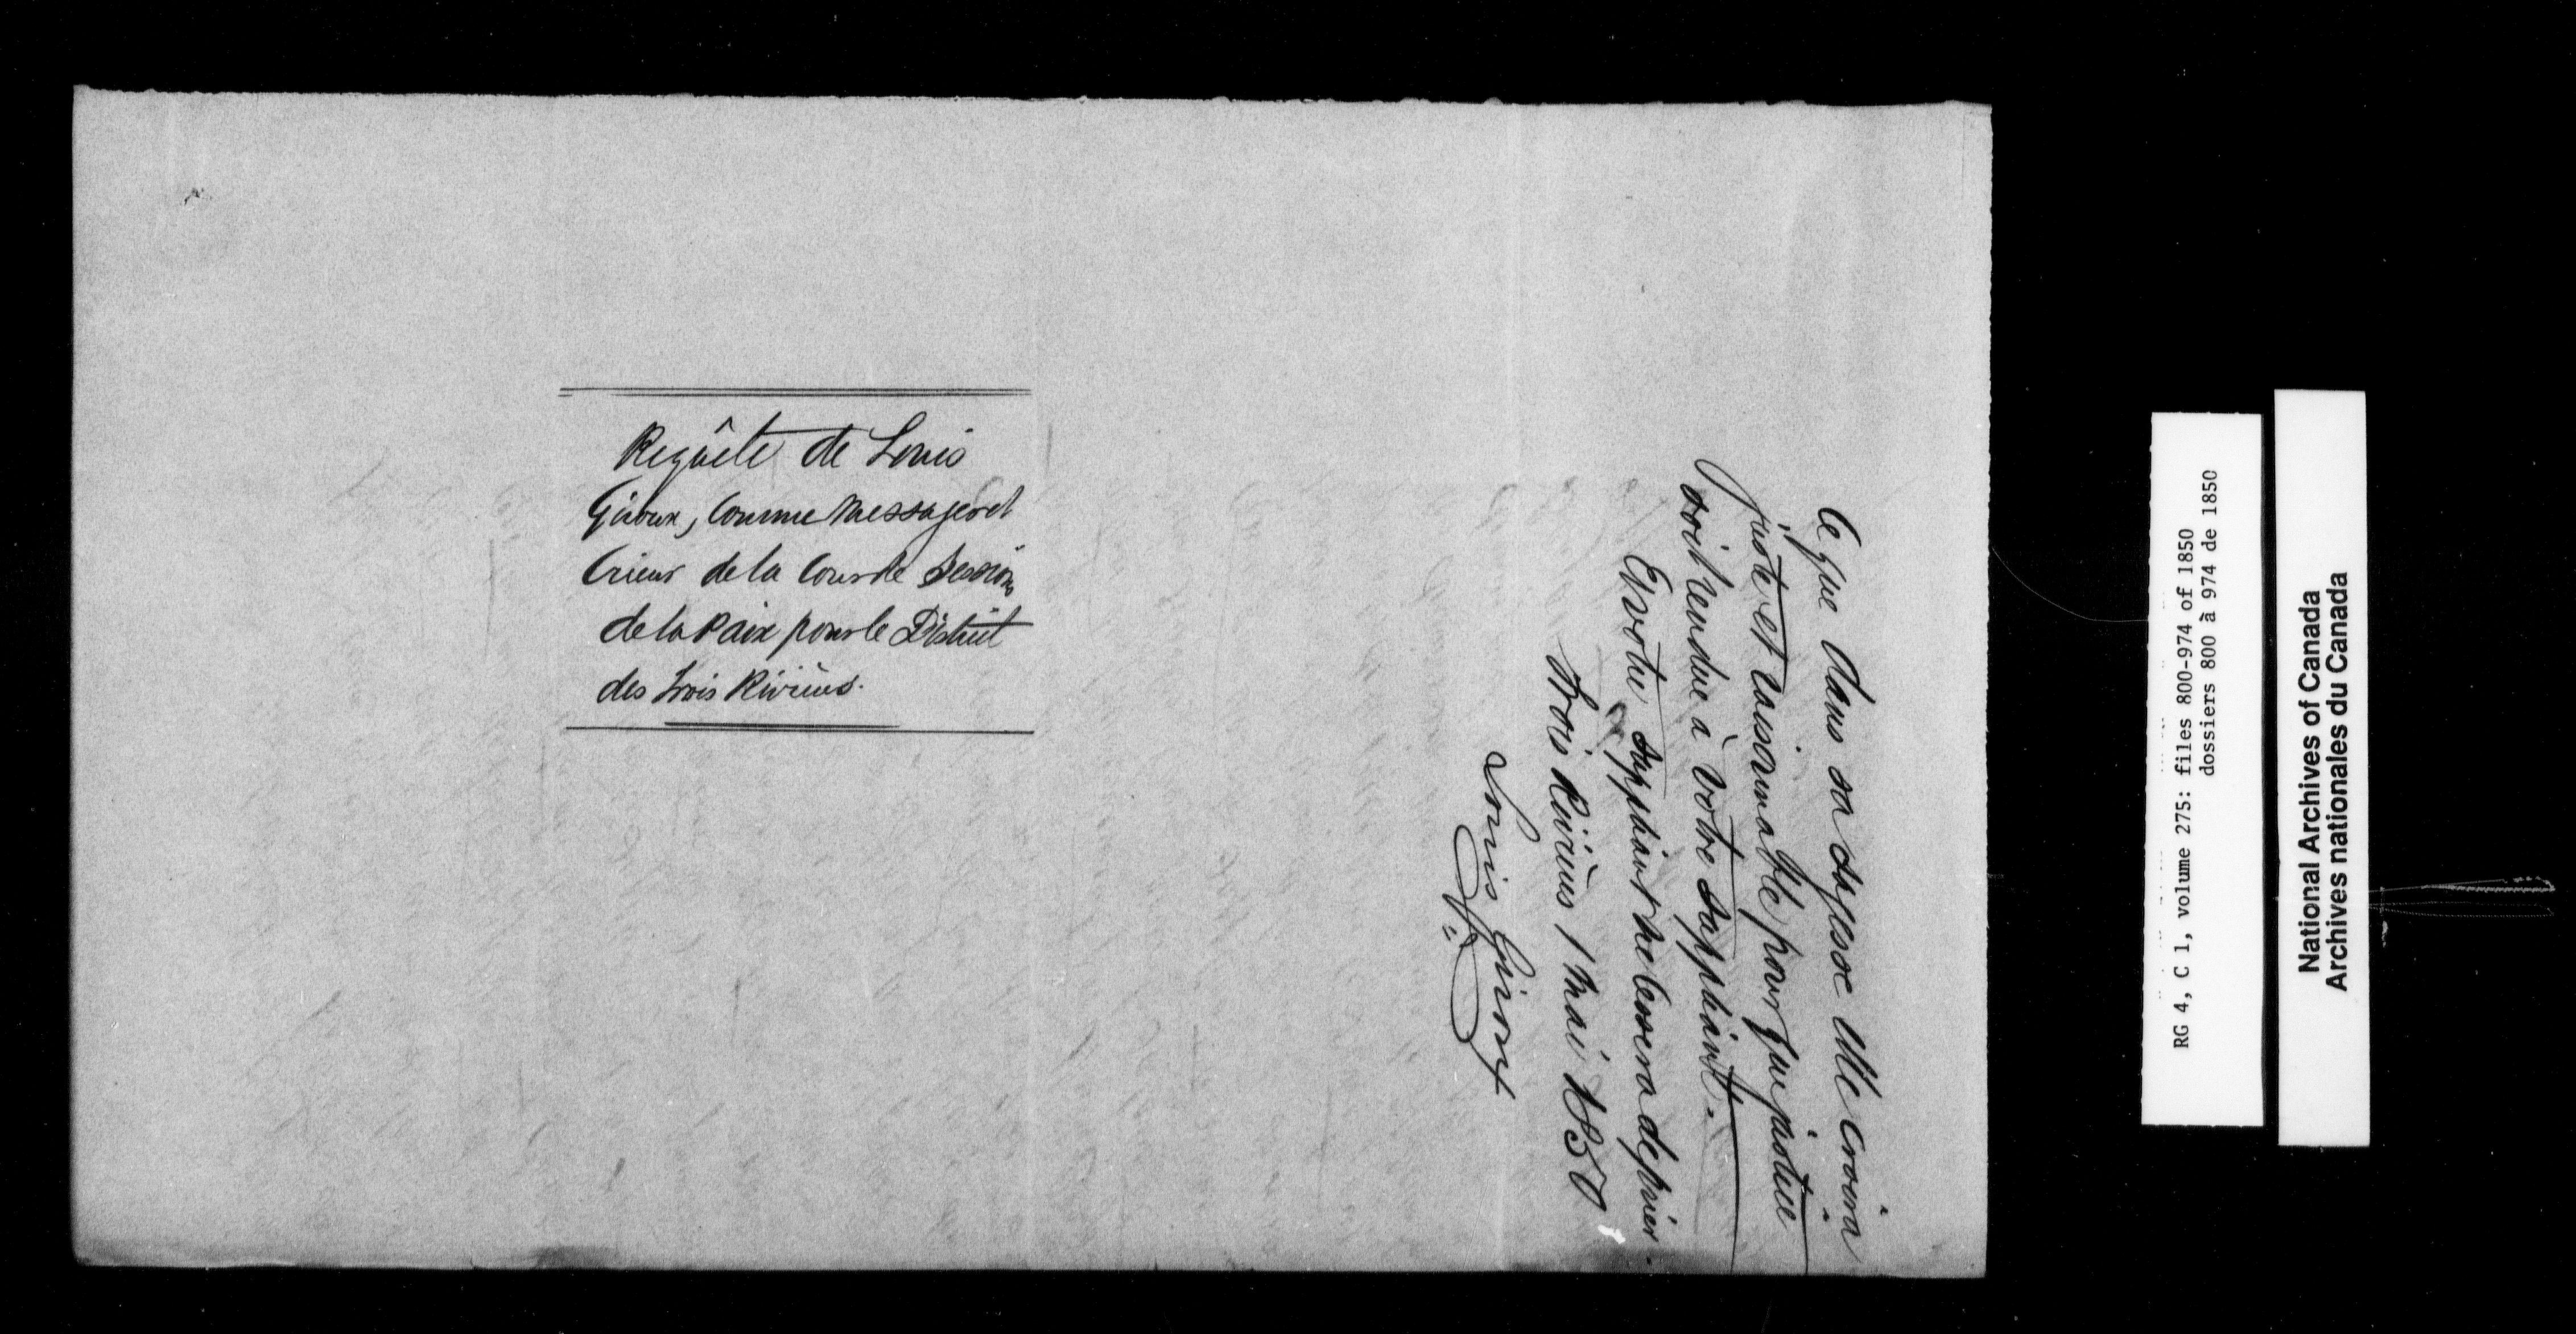 Requête de Louis
Giroux, Comme Messager et
Crieur de la Cour de Sessions
de la Paix pour le District
des Trois Rivières.
Ce que dans sa sagesse Elle croira
juste et raisonnable pour que justice
soit rendue à Votre Suppliant.
Et votre Suppliant ne Cessera de prier.
Trois Rivières 1 Mai 1850
Louis Giroux
RG 4, C 1, volume 275: files 800-974 of 1850
dossiers 800 à 974 de 1850
National Archives of Canada
Archives nationales du Canada